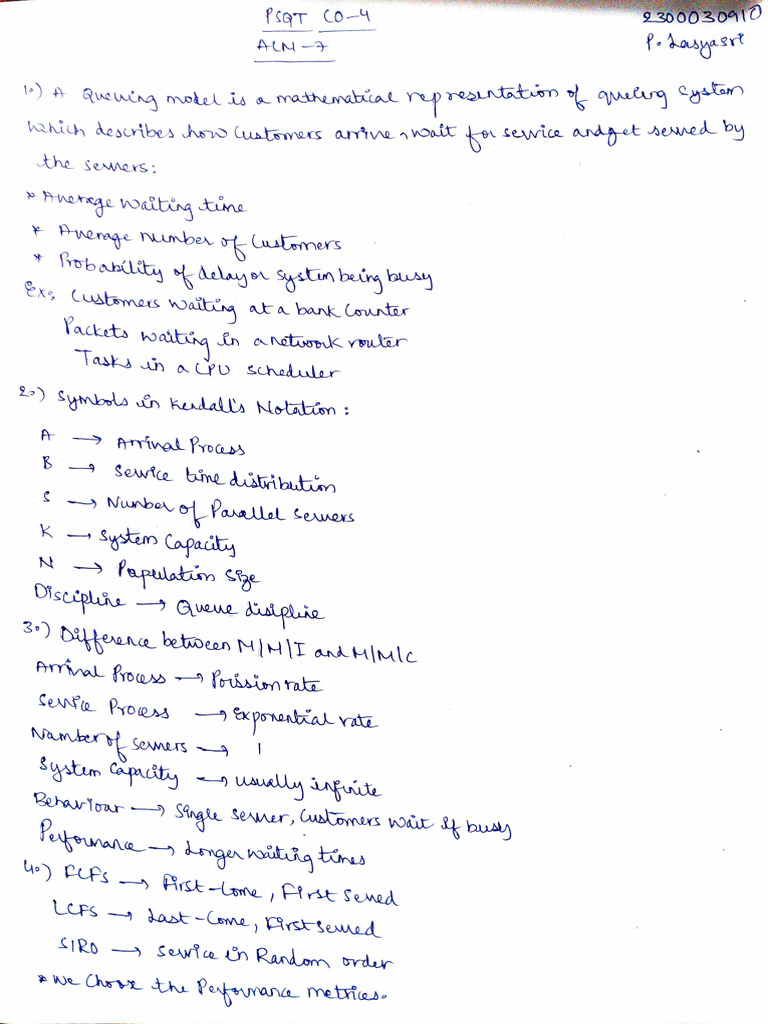 PSQT CO-4
2300030910
ALM-7
P. Lasyasri
1.) A Queuing model is a mathematical representation of queing system
which describes how customers arrive, wait for service and get served by
the servers:
* Average waiting time
* Average number of customers
* Probability of delay or system being busy
Ex: Customers waiting at a bank counter
Packets waiting in a network router
Tasks in a CPU scheduler
2.) Symbols in Kendall's Notation:
A → Arrival Process
B → Service time distribution
S → Number of Parallel servers
K → System Capacity
N → Population Size
Discipline → Queue disipline
3.) Difference between M/M/1 and M/M/C
Arrival Process → Poission rate
Service Process → Exponential rate
Number of servers → 1
System Capacity → usually infinite
Behaviour → Single server, Customers wait if busy
Performance → Longer waiting times
4.) FCFS → First-Come, First Served
LCFS → Last-Come, First Served
SIRO → Service in Random order
* We Choose the Performance metrices.